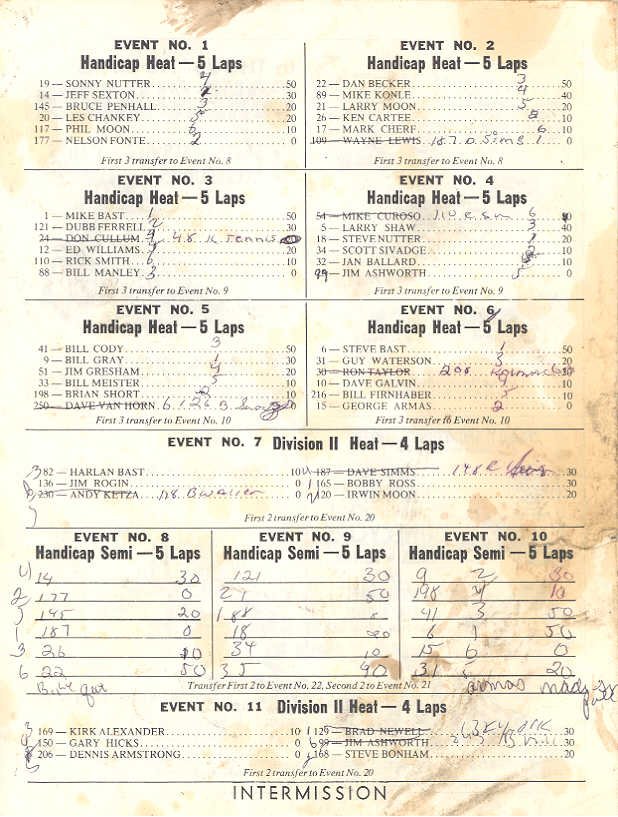 EVENT NO. 1
Handicap Heat — 5 Laps
19 — SONNY NUTTER 4 50
14 — JEFF SEXTON 30
145 — BRUCE PENHALL 3 20
20 — LES CHANKEY 5 20
117 — PHIL MOON 6 10
177 — NELSON FONTE 2 0
First 3 transfer to Event No. 8
EVENT NO. 2
Handicap Heat — 5 Laps
22 — DAN BECKER 3 50
89 — MIKE KONLE 4 40
21 — LARRY MOON 5 20
26 — KEN CARTEE 2 10
17 — MARK CHERF 6 10
109 — WAYNE LEWIS 187 D. Sims 1 0
First 3 transfer to Event No. 8
EVENT NO. 3
Handicap Heat — 5 Laps
1 — MIKE BAST 1 50
121 — DUBB FERRELL 2 30
24 — DON CULLUM 4 48 K Tennis
12 — ED WILLIAMS 5 20
110 — RICK SMITH 6 10
88 — BILL MANLEY 3 0
First 3 transfer to Event No. 9
EVENT NO. 4
Handicap Heat — 5 Laps
54 — MIKE CUROSO 6
5 — LARRY SHAW 3 40
18 — STEVE NUTTER 1 20
34 — SCOTT SIVADGE 2 10
32 — JAN BALLARD 10
99 — JIM ASHWORTH 5 0
First 3 transfer to Event No. 9
EVENT NO. 5
Handicap Heat — 5 Laps
41 — BILL CODY 3 50
9 — BILL GRAY 1 30
51 — JIM GRESHAM 4 20
33 — BILL MEISTER 5 10
198 — BRIAN SHORT 2 10
250 — DAVE VAN HORN 0
First 3 transfer to Event No. 10
EVENT NO. 6
Handicap Heat — 5 Laps
6 — STEVE BAST 1 50
31 — GUY WATERSON 3 20
30 — RON TAYLOR 208
10 — DAVE GALVIN 4 10
216 — BILL FIRNHABER 5 10
15 — GEORGE ARMAS 2 0
First 3 transfer to Event No. 10
EVENT NO. 7 Division II Heat — 4 Laps
3 82 — HARLAN BAST 10
136 — JIM ROGIN 0
230 — ANDY KETZA 0
187 — DAVE SIMMS 30
165 — BOBBY ROSS 30
120 — IRWIN MOON 20
First 2 transfer to Event No. 20
EVENT NO. 8
Handicap Semi — 5 Laps
4 14 30
2 177 0
5 145 20
1 187 0
3 26 10
6 22 50
EVENT NO. 9
Handicap Semi — 5 Laps
121 30
21 50
188
18 20
34 10
35 40
EVENT NO. 10
Handicap Semi — 5 Laps
9 2 30
198 4 10
41 3 50
6 1 50
15 6 0
31 5 20
Transfer First 2 to Event No. 22, Second 2 to Event No. 21
armas
EVENT NO. 11 Division II Heat — 4 Laps
169 — KIRK ALEXANDER 10
150 — GARY HICKS 0
206 — DENNIS ARMSTRONG 0
129 — BRAD NEWELL
99 — JIM ASHWORTH 30
168 — STEVE BONHAM 30
First 2 transfer to Event No. 20
INTERMISSION